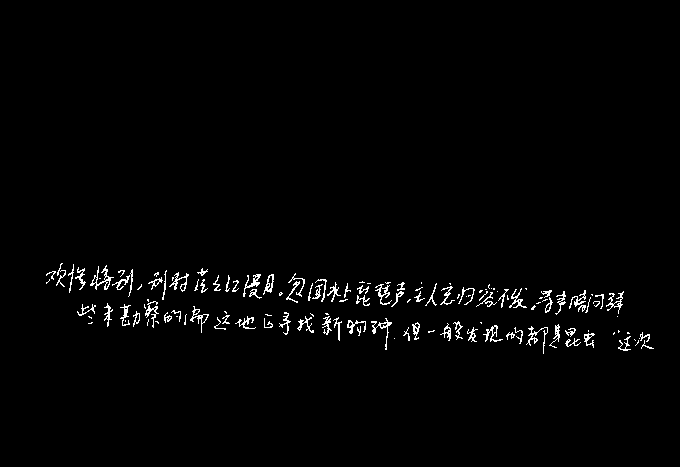 欢惨将别，别时茫茫江浸月。忽闻水上琵琶声，主人忘归客不发。寻声暗问弹
些未勘察的偏远地区寻找新物种.但一般发现的都是昆虫“这次